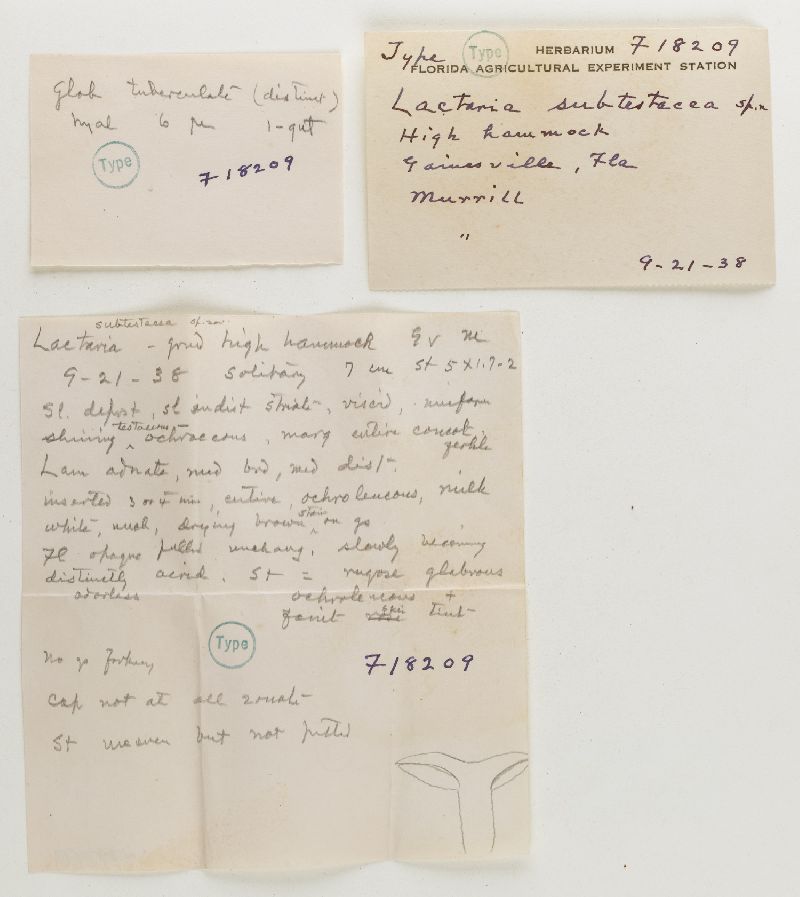 Glob tuberculate (distinct)
hyal 6 µ 1-gut
Type
F18209
Type Type HERBARIUM F18209
FLORIDA AGRICULTURAL EXPERIMENT STATION
Lactaria subtestacea sp.n
High hammock
Gainesville, Fla
Murrill
"
9-21-38
subtestacea sp. nov.
Lactaria - grnd high hammock Gv M
9-21-38 solitary 7 cm St 5 x 1.7-2
Sl. deprst, sl indist striate, viscid, uniform
shining testaceous- ochraceous, marg entire concol.
fertile
Lam adnate, med brd, med dist.
inserted 3 or 4 mm, entire, ochroleucous, milk
white, unch, drying brown stain on gs
Fl opaque pallid unchang, slowly becoming
distinctly acrid. St = rugose glabrous
odorless ochroleucous +
faint tint
Type
F18209
No go
Cap not at all zonate
St uneven but not pitted